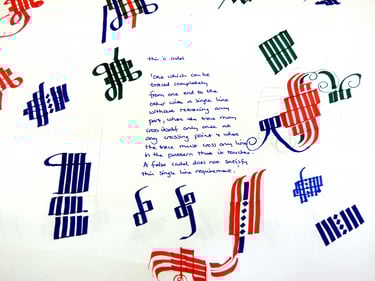 this is cadel
'One which can be
traced completely
from one end to the
other with a single line
without retracing any
part, where the trace may
cross itself only once at
any crossing point & where
the trace must cross any line
in the pattern that it touches.
A false cadel does not satisfy
this single line requirement.